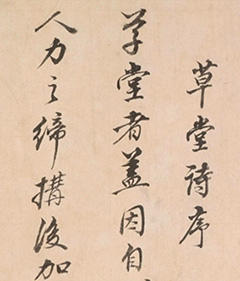 草堂诗序
草堂者盖因自
人力之缔搆後加